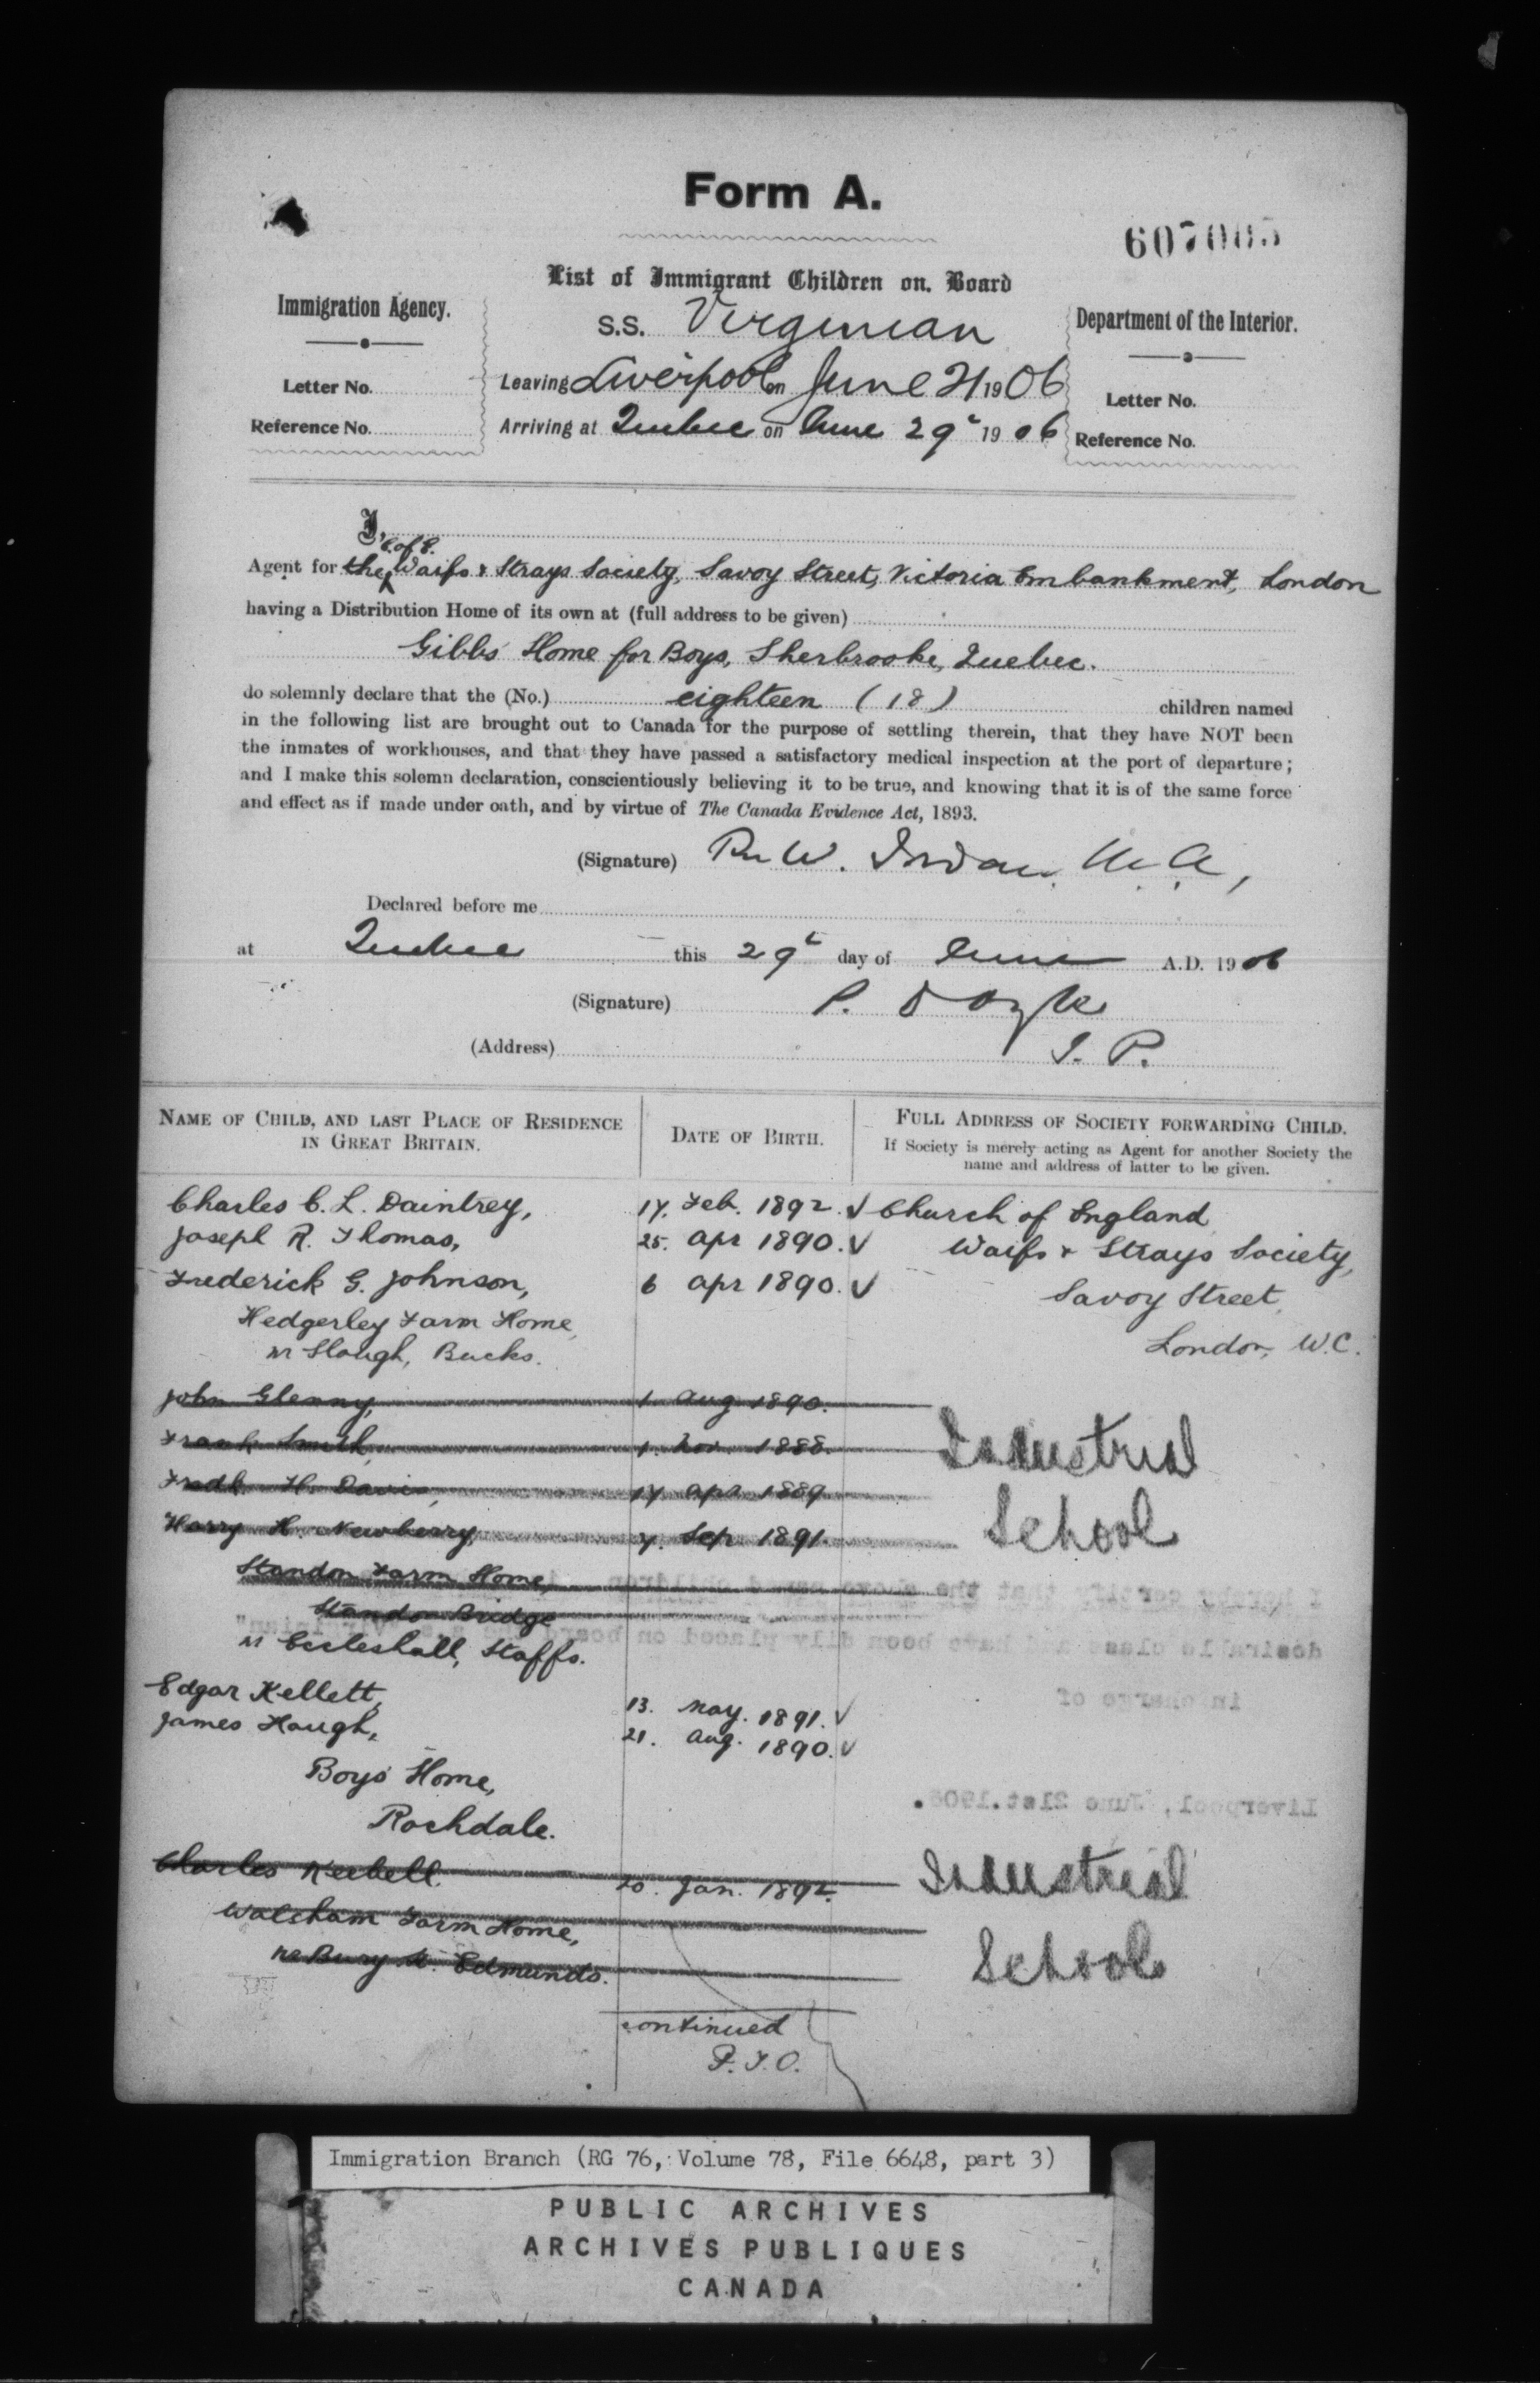 Form A.
607005
List of Immigrant Children on Board
Immigration Agency.
S.S. Virginian
Department of the Interior.
Letter No.
Leaving Liverpool on June 21 1906
Letter No.
Reference No.
Arriving at Quebec on June 29th 1906
Reference No.
I,
C. of E.
Agent for the Waifs & Strays Society, Savoy Street, Victoria Embankment, London
having a Distribution Home of its own at (full address to be given)
Gibbs' Home for Boys, Sherbrooke, Quebec.
do solemnly declare that the (No.) eighteen (18) children named
in the following list are brought out to Canada for the purpose of settling therein, that they have NOT been
the inmates of workhouses, and that they have passed a satisfactory medical inspection at the port of departure;
and I make this solemn declaration, conscientiously believing it to be true, and knowing that it is of the same force
and effect as if made under oath, and by virtue of The Canada Evidence Act, 1893.
(Signature) W. M.A,
Declared before me
at Quebec this 29th day of June A.D. 1906
(Signature) P. Doyle
(Address) J. P.
NAME OF CHILD, AND LAST PLACE OF RESIDENCE
IN GREAT BRITAIN.
DATE OF BIRTH.
FULL ADDRESS OF SOCIETY FORWARDING CHILD.
If Society is merely acting as Agent for another Society the
name and address of latter to be given.
Charles C. L. Daintrey, 17. Feb. 1892. ✓ Church of England
Joseph R. Thomas, 25. Apr 1890. ✓ Waifs & Strays Society,
Frederick G. Johnson, 6 Apr 1890. ✓ Savoy Street,
Hedgerley Farm Home,
nr Slough, Bucks.
London, W.C.
John Glenny, 1. Aug 1890.
Frank Smith, 1. Nov. 1888.
Industrial
Fredk H. Davis, 17 Apr 1889
Harry H. Newberry, 7. Sep. 1891.
School
Standon Farm Home,
Standon Bridge
nr Eccleshall, Staffs.
I hereby certify that the above named children
desirable class and have been duly placed on board the s.s. "Virginian"
in charge of
Edgar Kellett, 13. May. 1891. ✓
James Haugh, 21. Aug. 1890. ✓
Boys' Home,
Rochdale.
Liverpool, June 21st. 1906.
Charles Keebell. 20. Jan. 1892.
Industrial
Walsham Farm Home,
nr Bury St. Edmunds.
School
continued
P.T.O.
Immigration Branch (RG 76, Volume 78, File 6648, part 3)
PUBLIC ARCHIVES
ARCHIVES PUBLIQUES
CANADA